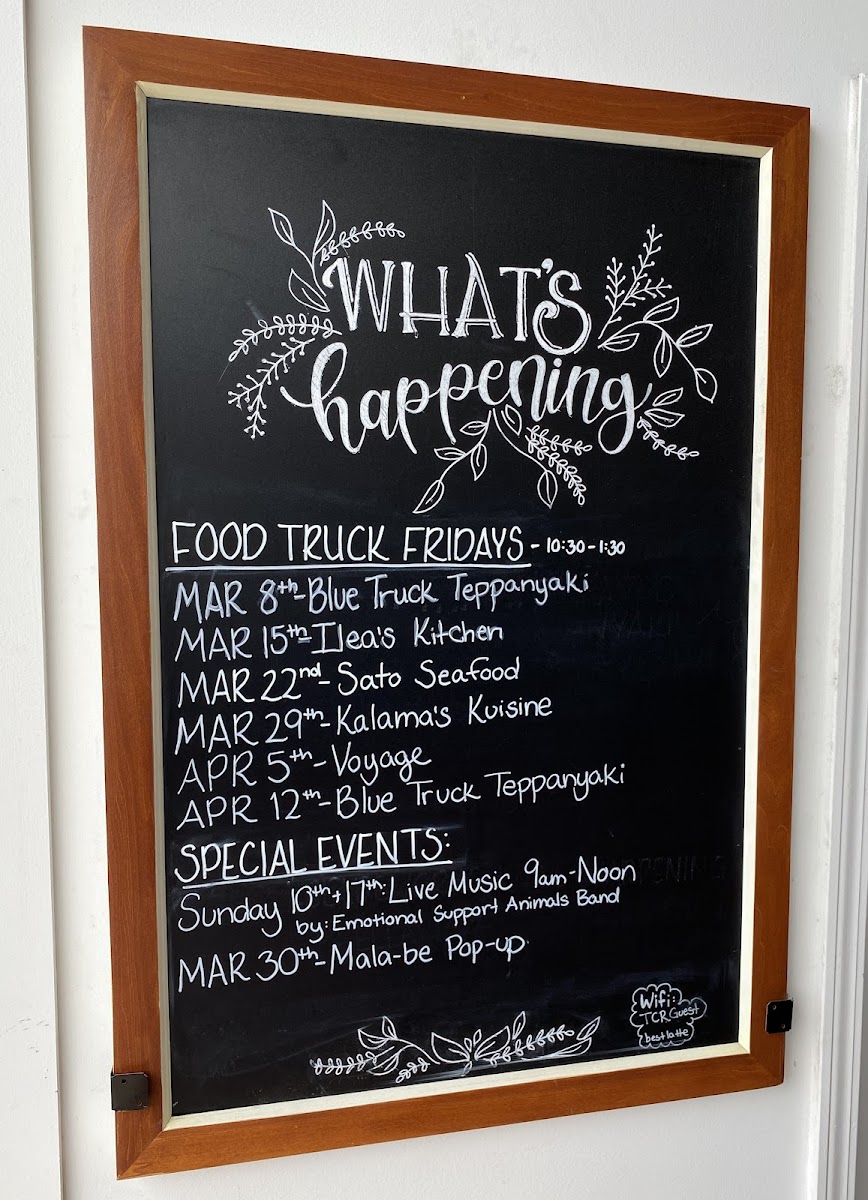 WHAT'S
happening
FOOD TRUCK FRIDAYS - 10:30-1:30
MAR 8th-Blue Truck Teppanyaki
MAR 15th-Ilea's Kitchen
MAR 22nd-Sato Seafood
MAR 29th-Kalama's Kuisine
APR 5th-Voyage
APR 12th-Blue Truck Teppanyaki
SPECIAL EVENTS:
Sunday 10th+17th: Live Music 9am-Noon
by: Emotional Support Animals Band
MAR 30th-Mala-be Pop-up
Wifi:
TCRGuest
bestlatte